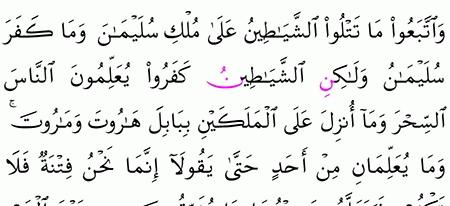 وَٱتَّبَعُوا۟ مَا تَتْلُوا۟ ٱلشَّيَـٰطِينُ عَلَىٰ مُلْكِ سُلَيْمَـٰنَ وَمَا كَفَرَ
سُلَيْمَـٰنُ وَلَـٰكِنِ ٱلشَّيَـٰطِينُ كَفَرُوا۟ يُعَلِّمُونَ ٱلنَّاسَ
ٱلسِّحْرَ وَمَآ أُنزِلَ عَلَى ٱلْمَلَكَيْنِ بِبَابِلَ هَـٰرُوتَ وَمَـٰرُوتَ ۚ
وَمَا يُعَلِّمَانِ مِنْ أَحَدٍ حَتَّىٰ يَقُولَآ إِنَّمَا نَحْنُ فِتْنَةٌ فَلَا